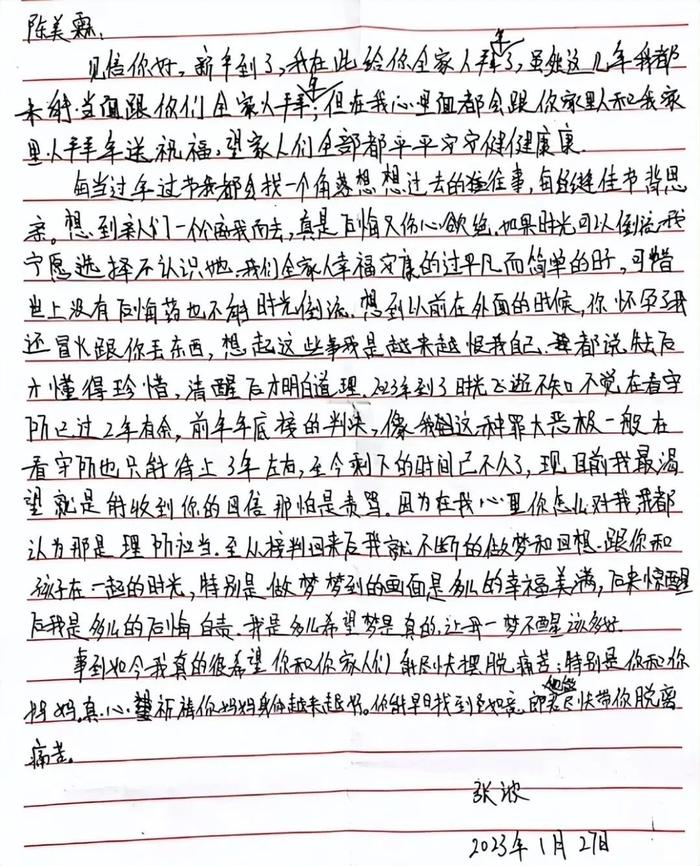 陈美霖:
见信你好,新年到了,我在此给你全家人拜年了,虽然这几年我都
未能当面跟你们全家人拜年,但在我心里面都会跟你家里人和我家
里人拜年送祝福,望家人们全部都平平安安健健康康.
每当过年过节我都会找一个角落想想过去的往事,每逢佳节背思
亲。想到亲人们一个个离我而去,真是后悔又伤心欲绝.如果时光可以倒流我
宁愿选择不认识她.我们全家人幸福安康的过平凡而简单的日子,可惜
世上没有后悔药也不能时光倒流.想到以前在外面的时候,你怀孕了我
还冒火跟你丢东西,想起这些事我是越来越恨我自己.都说失去后
才懂得珍惜,清醒后才明白道理.2023年到了时光飞逝不知不觉在看守
所已过2年有余,前年年底接的判决,像我这种罪大恶极一般在
看守所也只能待上3年左右,至今剩下的时间已不久了,现目前我最渴
望就是能收到你的回信那怕是责骂.因为在我心里你怎么对我我都
认为那是理所应当.至从接判回来后我就不断的做梦和回想.跟你和
孩子在一起的时光,特别是做梦梦到的画面是多么的幸福美满,后来惊醒
后我是多么的后悔自责.我是多么希望梦是真的,让我一梦不醒该多好.
事到如今我真的很希望你和你家人们能尽快摆脱痛苦;特别是你和你
妈妈.真心望祈祷你妈妈身体越来越好。你能早日找到如意郎君尽快带你脱离
痛苦。
张波
2023年1月27日